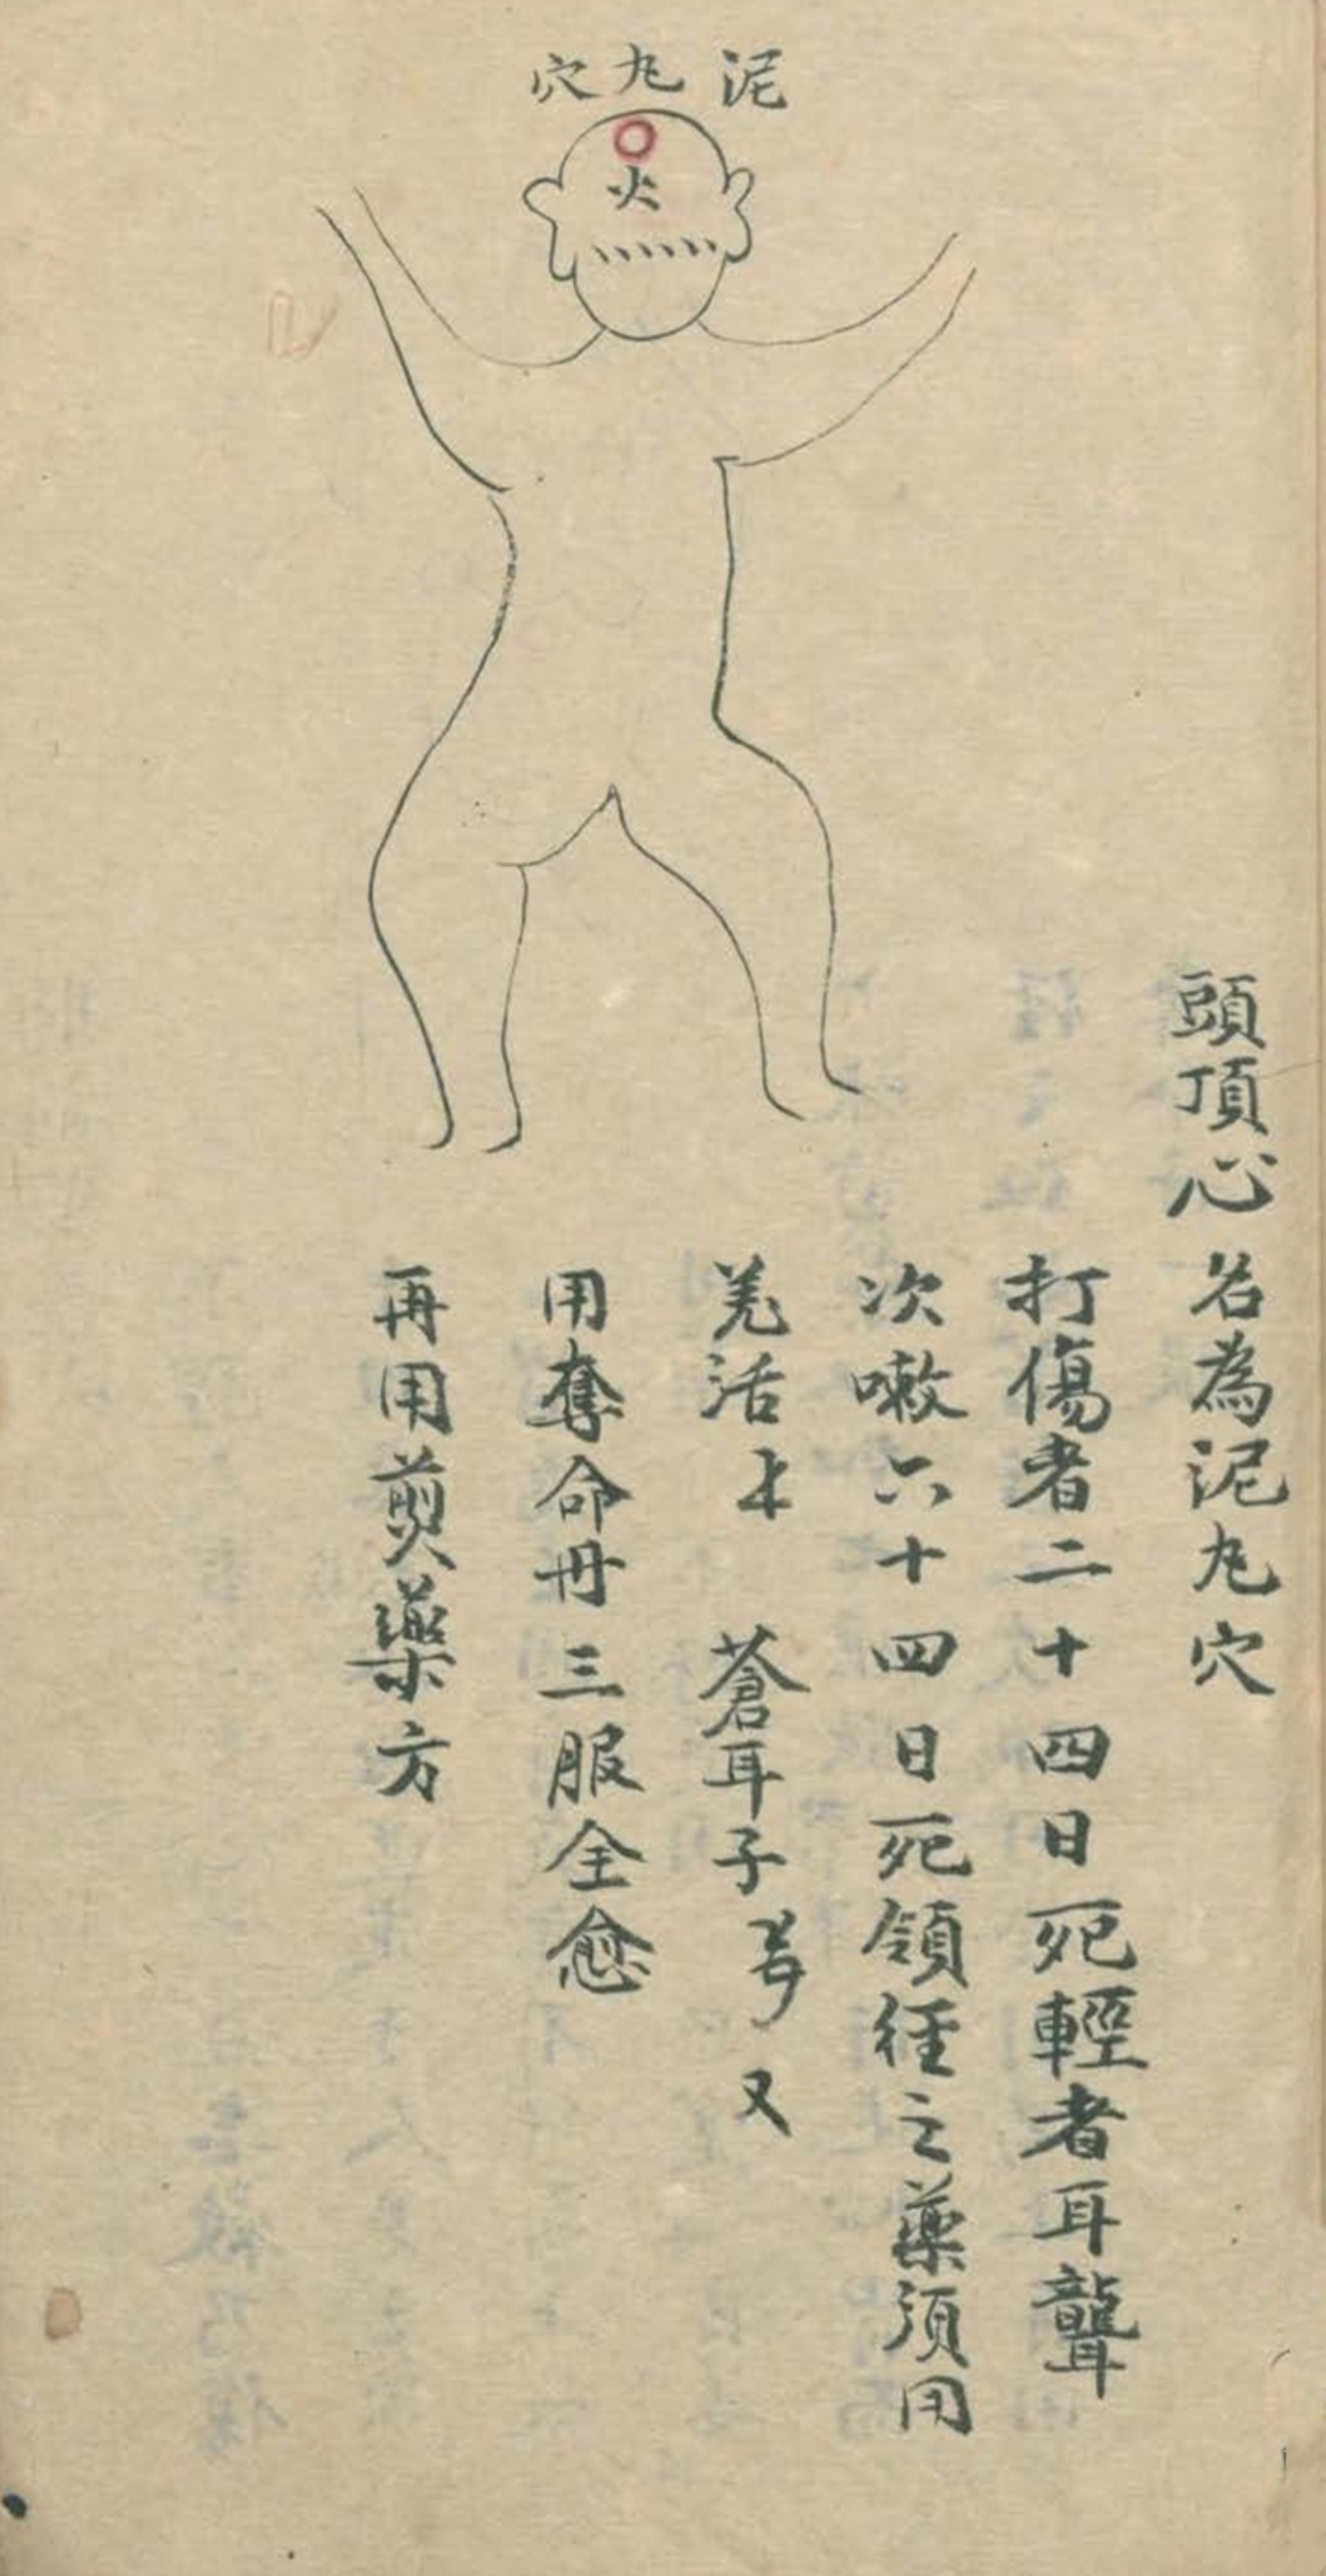 泥丸穴
火
頭頂心名為泥丸穴
打傷者二十四日死輕者耳聾
次嗽六十四日死領徑之藥須用
羌活 蒼耳子 又
用奪命丹三服全愈
再用煎藥方